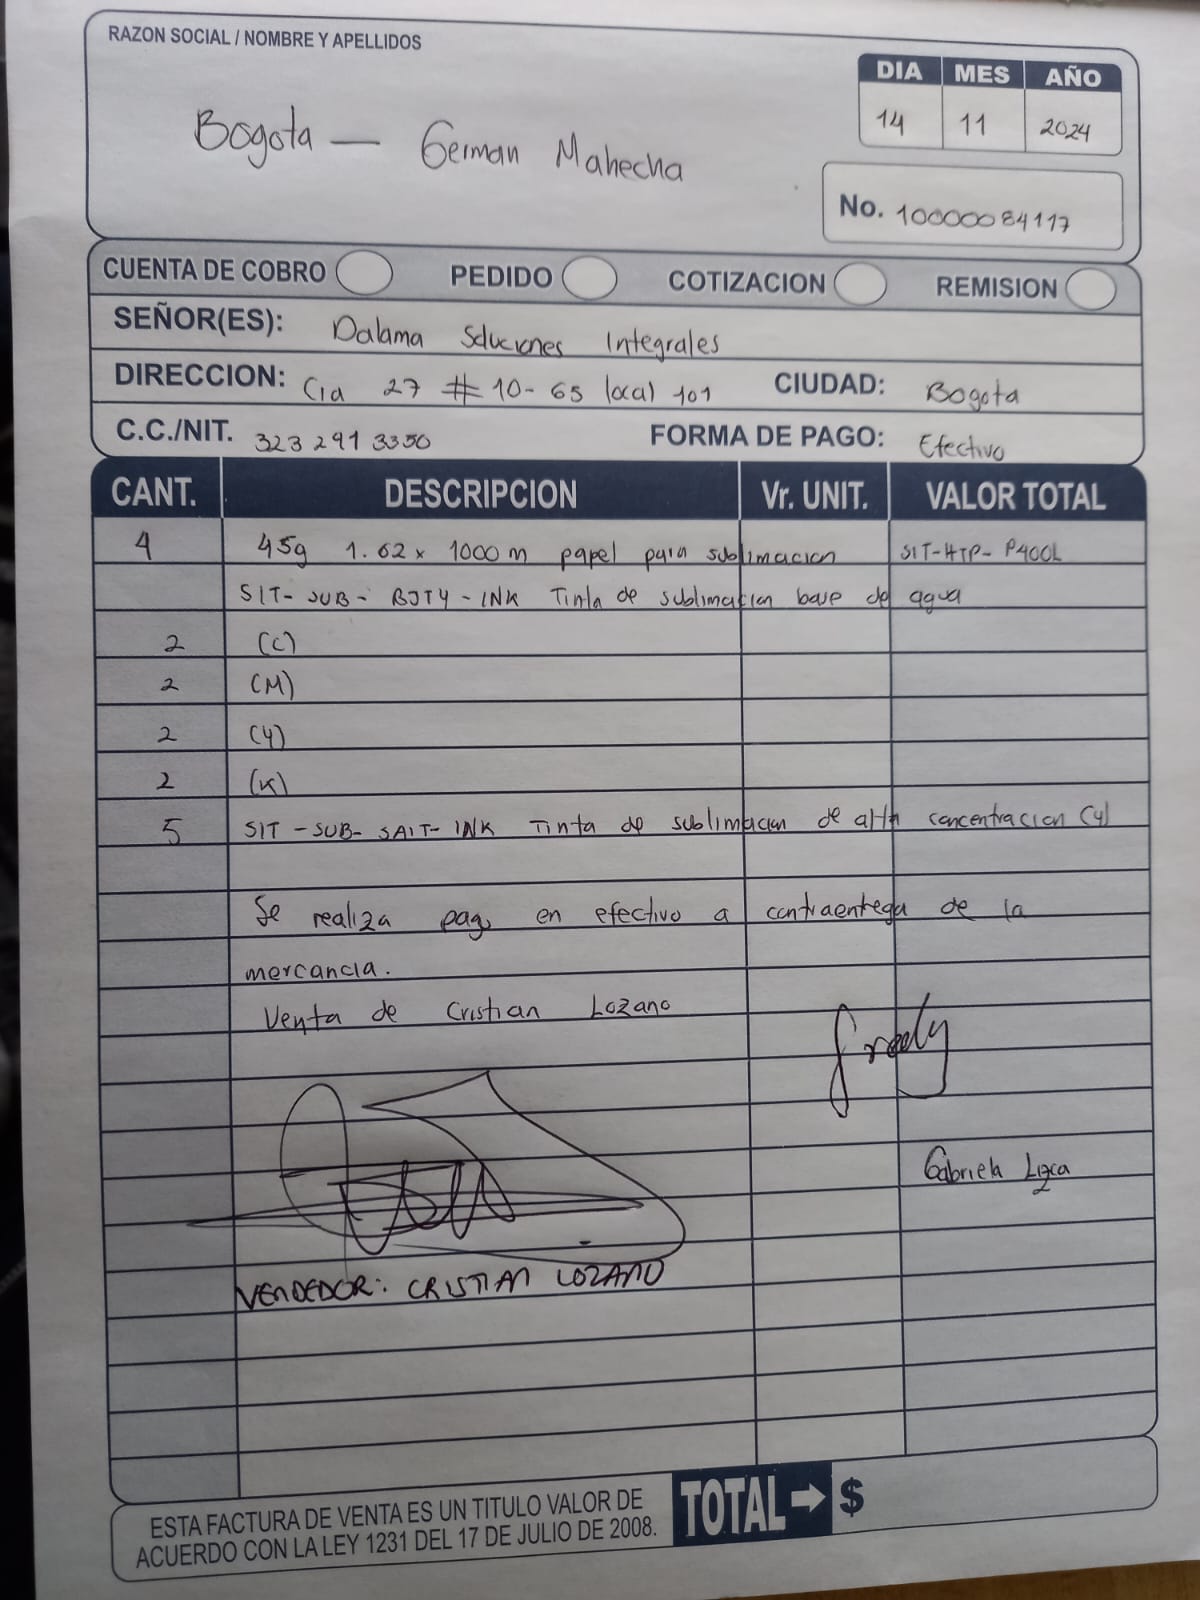 RAZON SOCIAL / NOMBRE Y APELLIDOS
DIA MES AÑO
14 11 2024
Bogota — German Mahecha
No. 10000084117
CUENTA DE COBRO PEDIDO COTIZACION REMISION
SEÑOR(ES): Dalama Soluciones Integrales
DIRECCION: Cra 27 # 10-65 local 101 CIUDAD: Bogota
C.C./NIT. 323 291 3350 FORMA DE PAGO: Efectivo
CANT. DESCRIPCION Vr. UNIT. VALOR TOTAL
4 45g 1.62x 1000m papel para sublimacion SIT-HTP-P400L
SIT-SUB-BJTY-INK Tinta de sublimacion base de agua
2 (C)
2 (M)
2 (Y)
2 (K)
5 SIT-SUB-SAIT-INK Tinta de sublimacion de alta concentracion (Y)
Se realiza pago en efectivo a contraentrega de la
mercancia.
Venta de Cristian Lozano
Fredy
Gabriela
VENDEDOR: CRISTIAN LOZANO
ESTA FACTURA DE VENTA ES UN TITULO VALOR DE
ACUERDO CON LA LEY 1231 DEL 17 DE JULIO DE 2008.
TOTAL → $